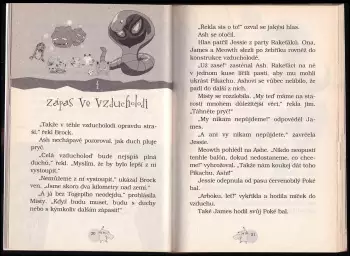 Zápas ve vzducholodi
„Takže v téhle vzducholodi opravdu stra-
ší,“ řekl Brock.
Ash nechápavě pozoroval, jak duch pluje
pryč.
„Celá vzducholoď bude nejspíš plná
duchů,“ řekl. „Myslím, že by bylo lepší z ní
vystoupit.“
„Nemůžeme z ní vystoupit,“ ukázal Brock
ven. „Jsme skoro dva kilometry nad zemí.“
„A já bez Togepiho neodejdu,“ prohlásila
Misty. „Když budu muset, budu s duchy
nebo s kýmkoliv dalším zápasit!“
„Řekla sis o to!“ ozval se jakýsi hlas.
Ash se otočil.
Hlas patřil Jessie z party Raketáků. Ona,
James a Meowth slezli po žebříku rovnou do
konstrukce vzducholodě.
„Už zase!“ zasténal Ash. Raketáci na něj
v jednom kuse líčili pasti, aby mu mohli
ukrást Pikachu. Ashovi se vůbec nelíbilo, že
padl do další z nich.
Misty se rozzlobila. „My teď máme na sta-
rosti mnohem důležitější věci,“ řekla jim.
„Táhněte pryč!“
„My nikam nepůjdeme!“ odpověděl Ja-
mes.
„A ani vy nikam nepůjdete,“ zavrčela
Jessie.
Meowth pohlédl na Ashe. „Nikdo neopustí
tenhle balón, dokud nedostaneme, co chce-
me!“ vyhrožoval. „Takže nám koukej dát toho
Pikachu, Ashi!“
Jessie odepnula od pasu červenobílý Poké
bal.
„Arboku, leť!“ vykřikla a hodila míček do
vzduchu.
Také James hodil svůj Poké bal.